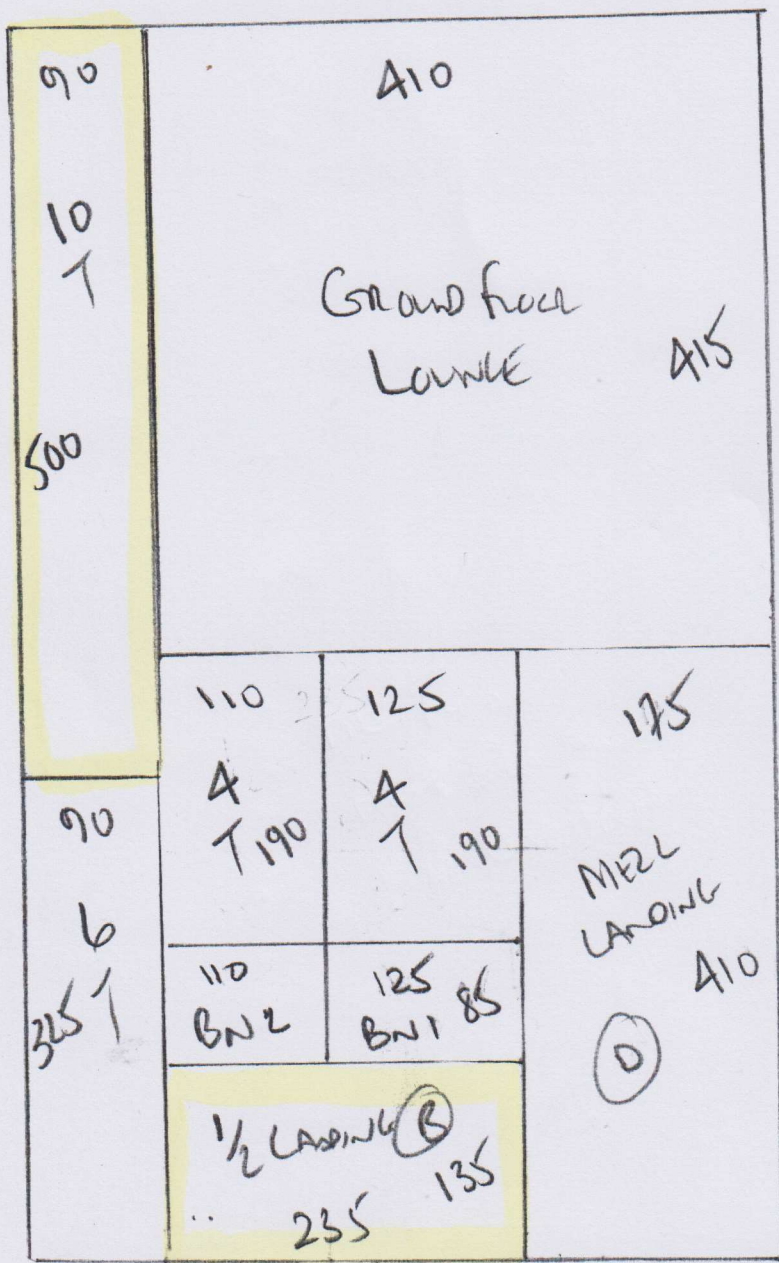 90
10
T
500
410
GROUND FLOOR
LOUNGE
415
110
4
T 190
125
4
T 190
175
MEZZ
LANDING
410
D
90
6
T
325
110
BN2
125
BN1 85
1/2 LANDING B
135
235